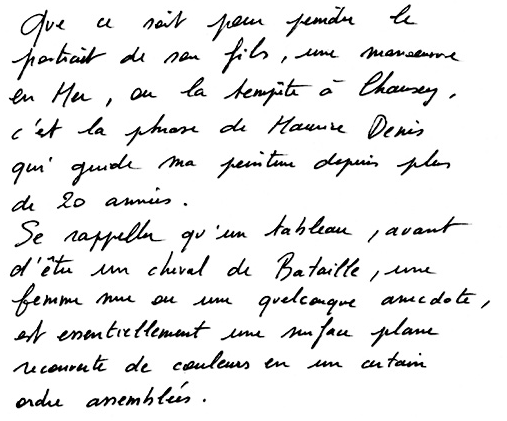 Que ce soit pour peindre le
portrait de son fils, une manoeuvre
en Mer, ou la tempête à Chausey,
c'est la phrase de Maurice Denis
qui guide ma peinture depuis plus
de 20 années.
Se rappeller qu'un tableau, avant
d'être un cheval de Bataille, une
femme nue ou une quelconque anecdote,
est essentiellement une surface plane
recouverte de couleurs en un certain
ordre assemblées.